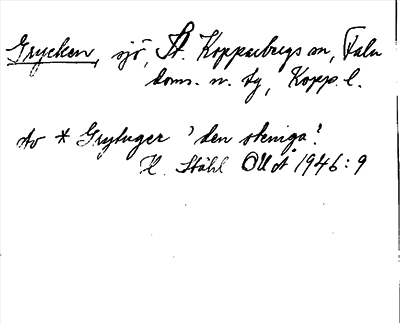 Grycken, sjö, St. Kopparbergs sn, Falu
doms. n. tg, Kopp. l.
Av * Grytuger 'den steniga'.
H. Ståhl OUÅ 1946:9